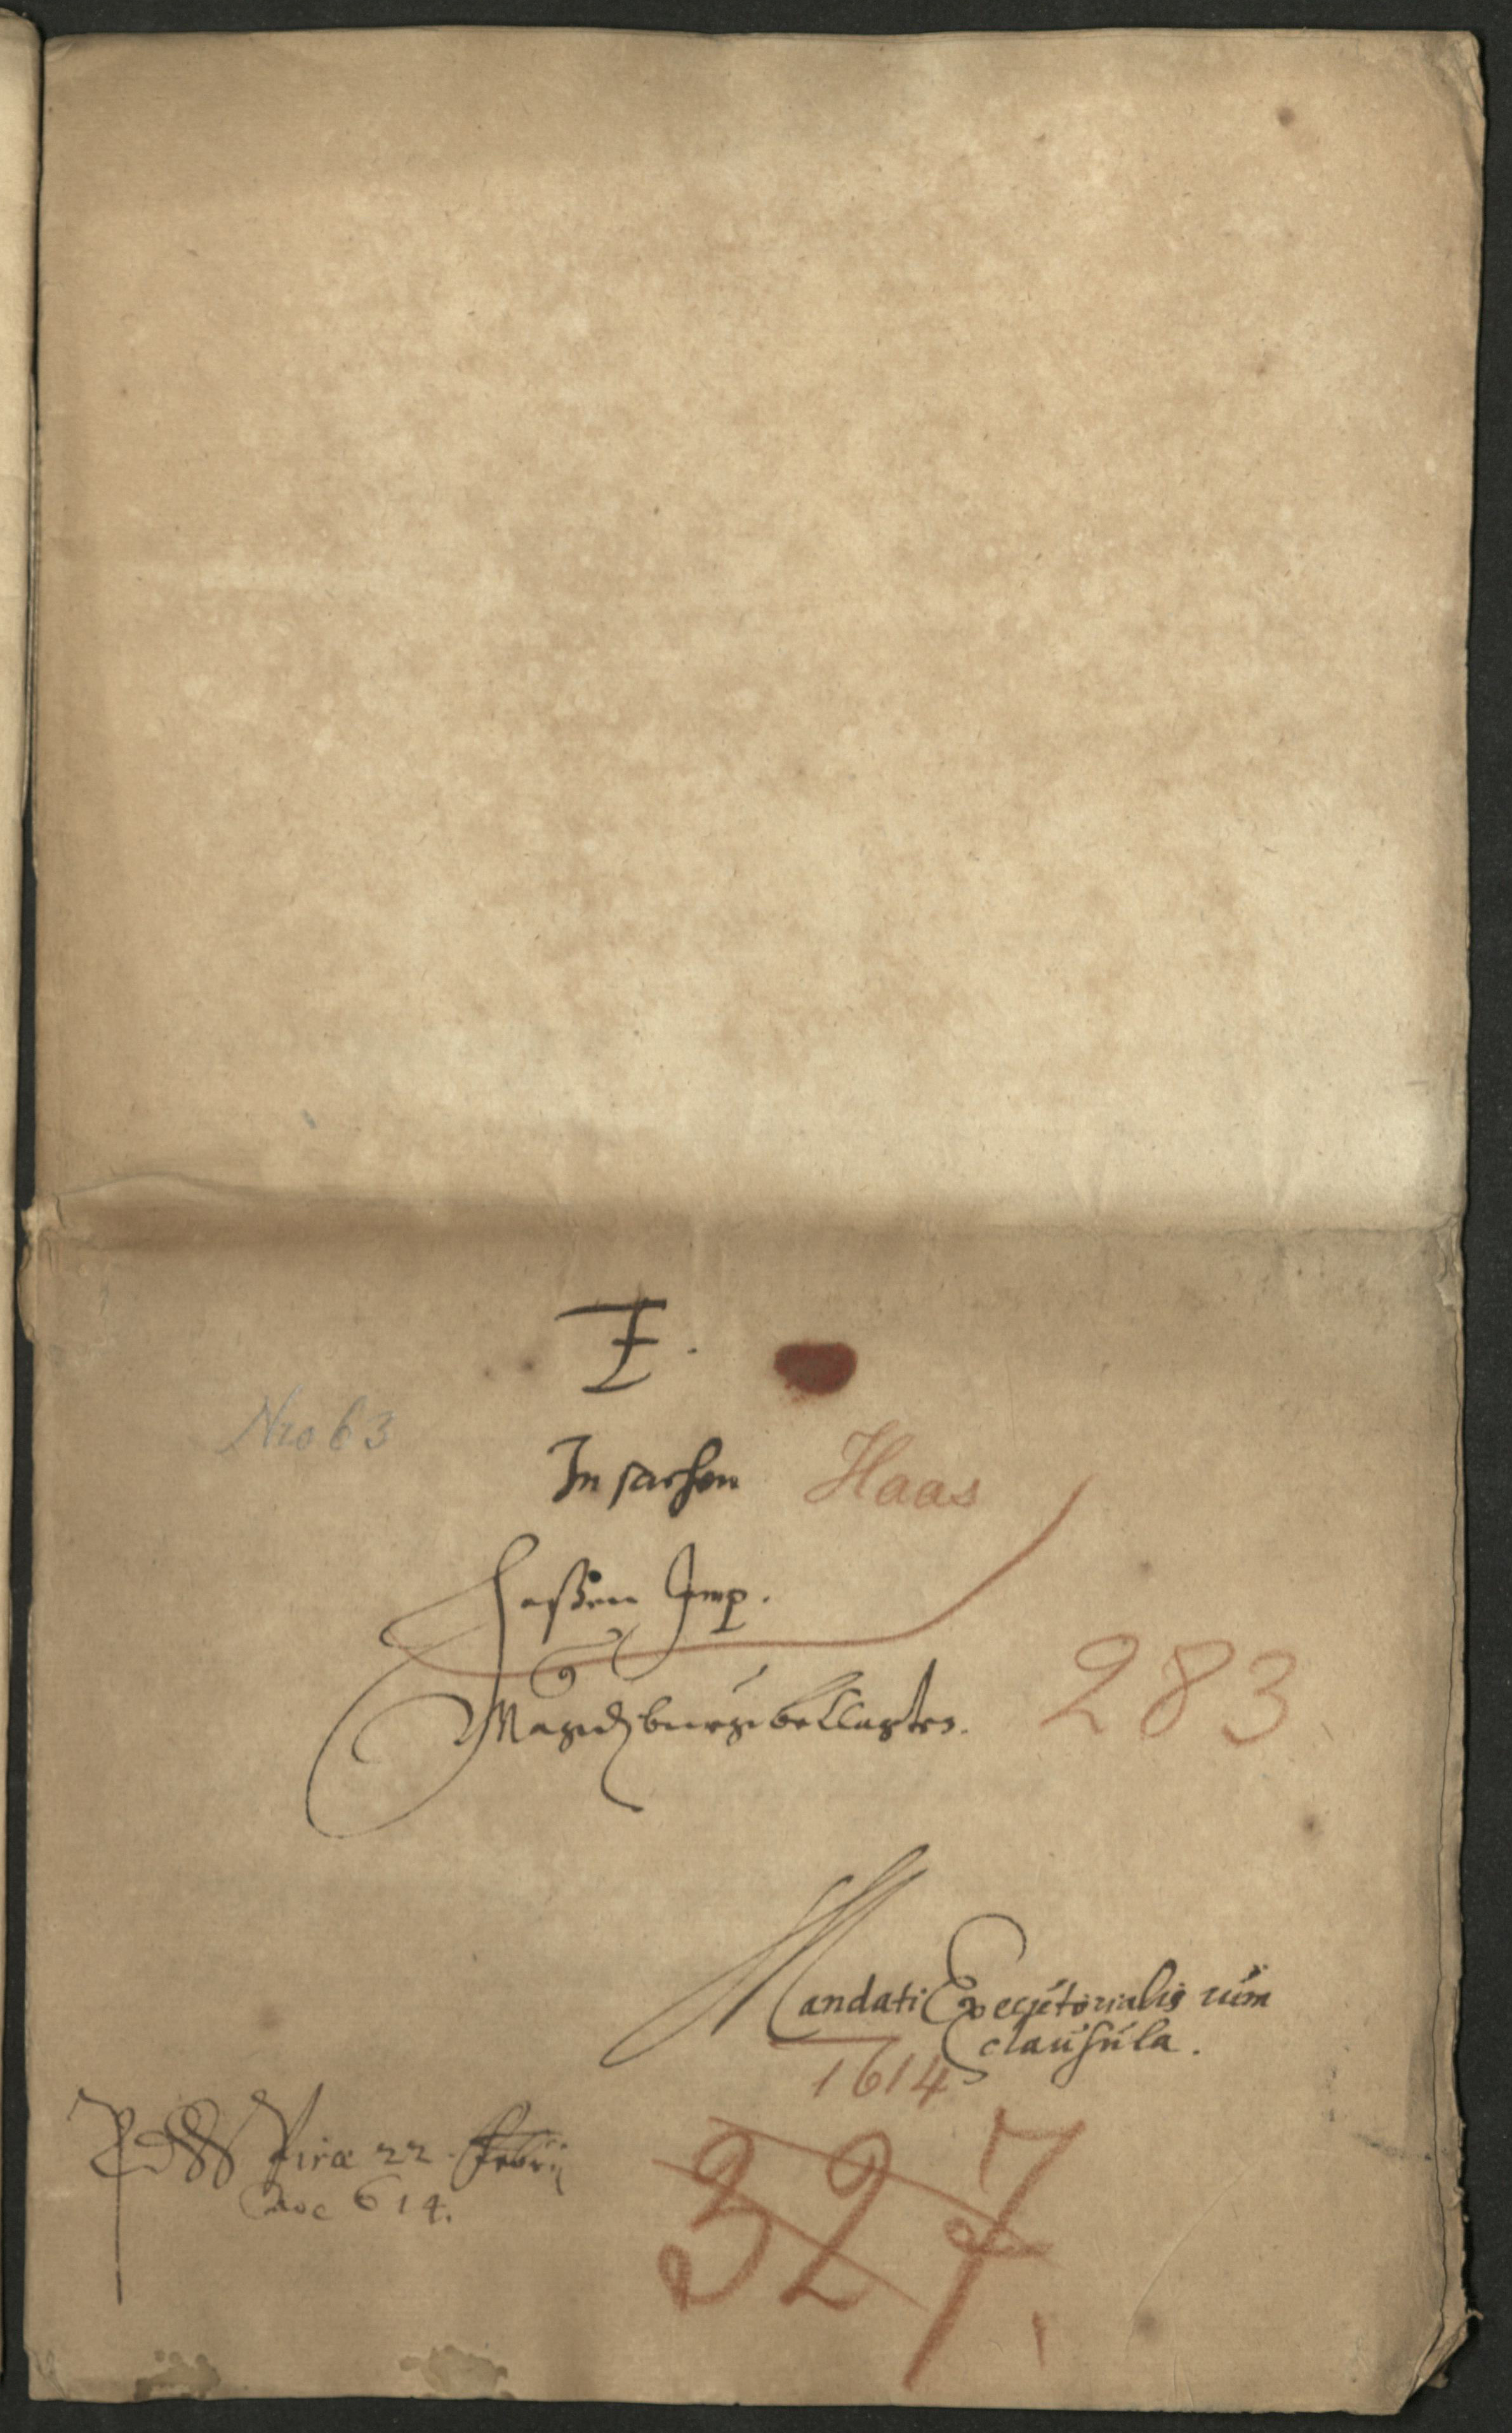 E.
Nro 63
In sachen Haas
Haßen Imp.
Magdeburgi beklagten.
283
Mandati Executorialis cum
clausula.
1614
Spiræ 22. Febrii
Aoe 614.
327.